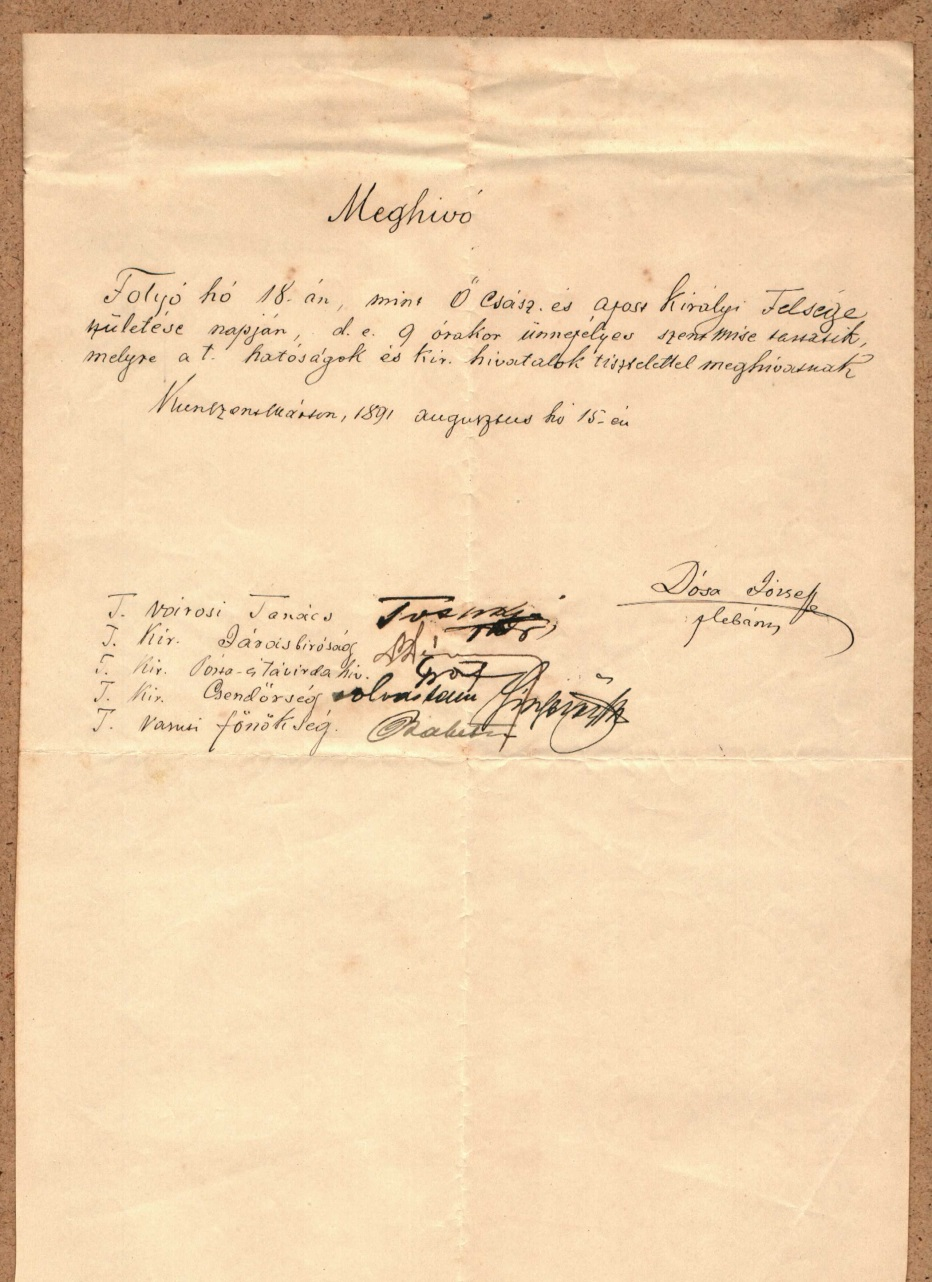 Meghivó
Folyó hó 18-án, mint Ő Csász. és apost Királyi Felsége
születése napján, d. e. 9 órakor ünnepélyes szentmise tartatik,
melyre a t. hatóságok és kir. hivatalok tisztelettel meghivatnak
Kunszentmárton, 1891 augusztus hó 15-én
Dósa József
plebános
T. városi Tanács
T. Kir. Járásbiróság
T. Kir. Posta-és távirda hiv.
T. Kir. Csendőrség olvastam
T. vasuti főnökség.